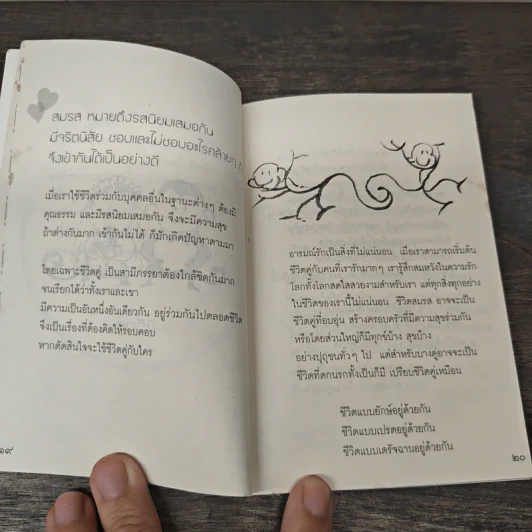 สมรส หมายถึงรสนิยมเสมอกัน
มีจริตนิสัย ชอบและไม่ชอบอะไรคล้ายๆ กัน
จึงเข้ากันได้เป็นอย่างดี
เมื่อเราใช้ชีวิตร่วมกับบุคคลอื่นในฐานะต่างๆ ต้องมี
คุณธรรม และมีรสนิยมเสมอกัน จึงจะมีความสุข
ถ้าต่างกันมาก เข้ากันไม่ได้ ก็มักเกิดปัญหาตามมา
โดยเฉพาะชีวิตคู่ เป็นสามีภรรยาต้องใกล้ชิดกันมาก
จนเรียกได้ว่าทั้งเราและเขา
มีความเป็นอันหนึ่งอันเดียวกัน อยู่ร่วมกันไปตลอดชีวิต
จึงเป็นเรื่องที่ต้องคิดให้รอบคอบ
หากตัดสินใจจะใช้ชีวิตคู่กับใคร
๑๙
อารมณ์รักเป็นสิ่งที่ไม่แน่นอน เมื่อเราสามารถเริ่มต้น
ชีวิตคู่กับคนที่เรารักมากๆ เรารู้สึกสมหวังในความรัก
โลกทั้งโลกสดใสสวยงามสำหรับเรา แต่ทุกสิ่งทุกอย่าง
ในชีวิตของเรานี้ไม่แน่นอน ชีวิตสมรส อาจจะเป็น
ชีวิตคู่ที่อบอุ่น สร้างครอบครัวที่มีความสุขร่วมกัน
หรือโดยส่วนใหญ่ก็มีทุกข์บ้าง สุขบ้าง
อย่างปุถุชนทั่วๆ ไป แต่สำหรับบางคู่อาจจะเป็น
ชีวิตที่ตกนรกทั้งเป็นก็มี เปรียบชีวิตคู่เหมือน
ชีวิตแบบยักษ์อยู่ด้วยกัน
ชีวิตแบบเปรตอยู่ด้วยกัน
ชีวิตแบบเดรัจฉานอยู่ด้วยกัน
๒๐